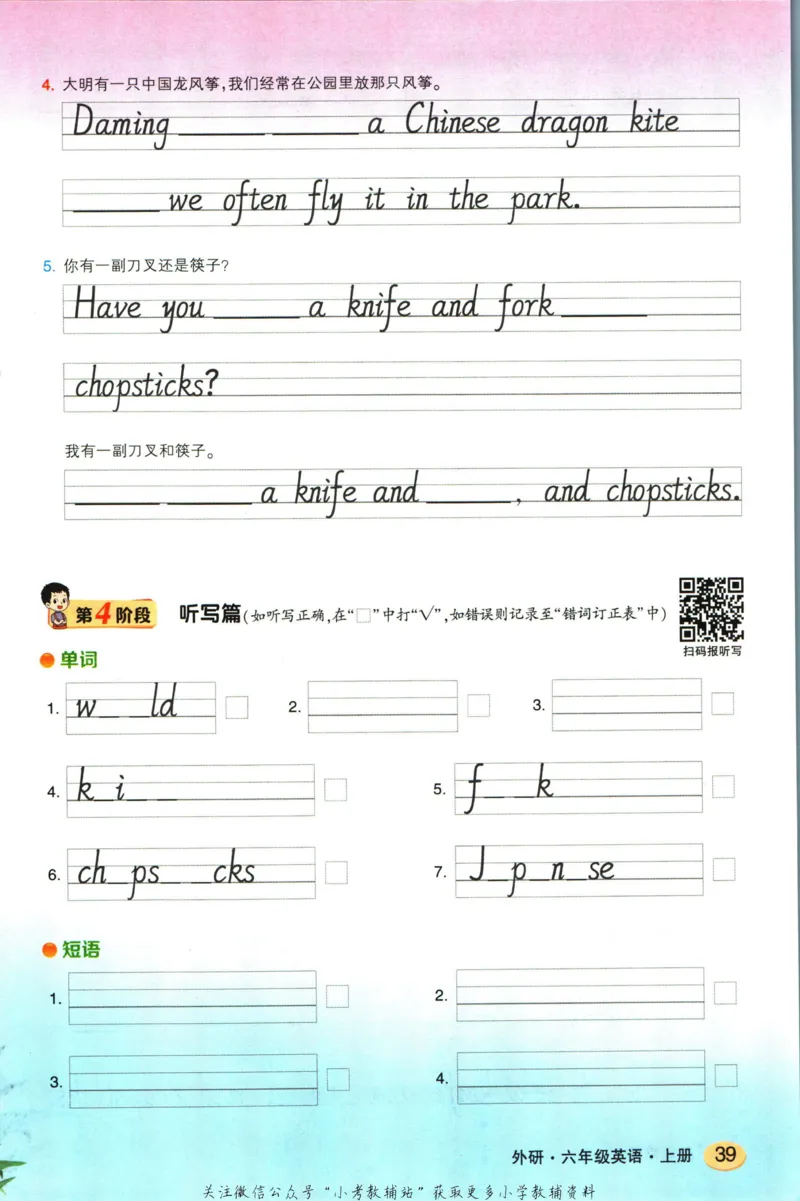 4. 大明有一只中国龙风筝,我们经常在公园里放那只风筝。
Daming ______ ______ a Chinese dragon kite
______ we often fly it in the park.
5. 你有一副刀叉还是筷子?
Have you ______ a knife and fork ______
chopsticks?
我有一副刀叉和筷子。
______ ______ a knife and ______, and chopsticks.
第4阶段 听写篇(如听写正确,在“□”中打“√”,如错误则记录至“错词订正表”中)
扫码报听写
单词
1. w_ _ld □ 2. □ 3. □
4. k_i_ _ □ 5. f_ _k □
6. ch_ps_ _cks □ 7. J_p_n_se □
短语
1. □ 2. □
3. □ 4. □
外研·六年级英语·上册 39
关注微信公众号“小考教辅站”获取更多小学教辅资料